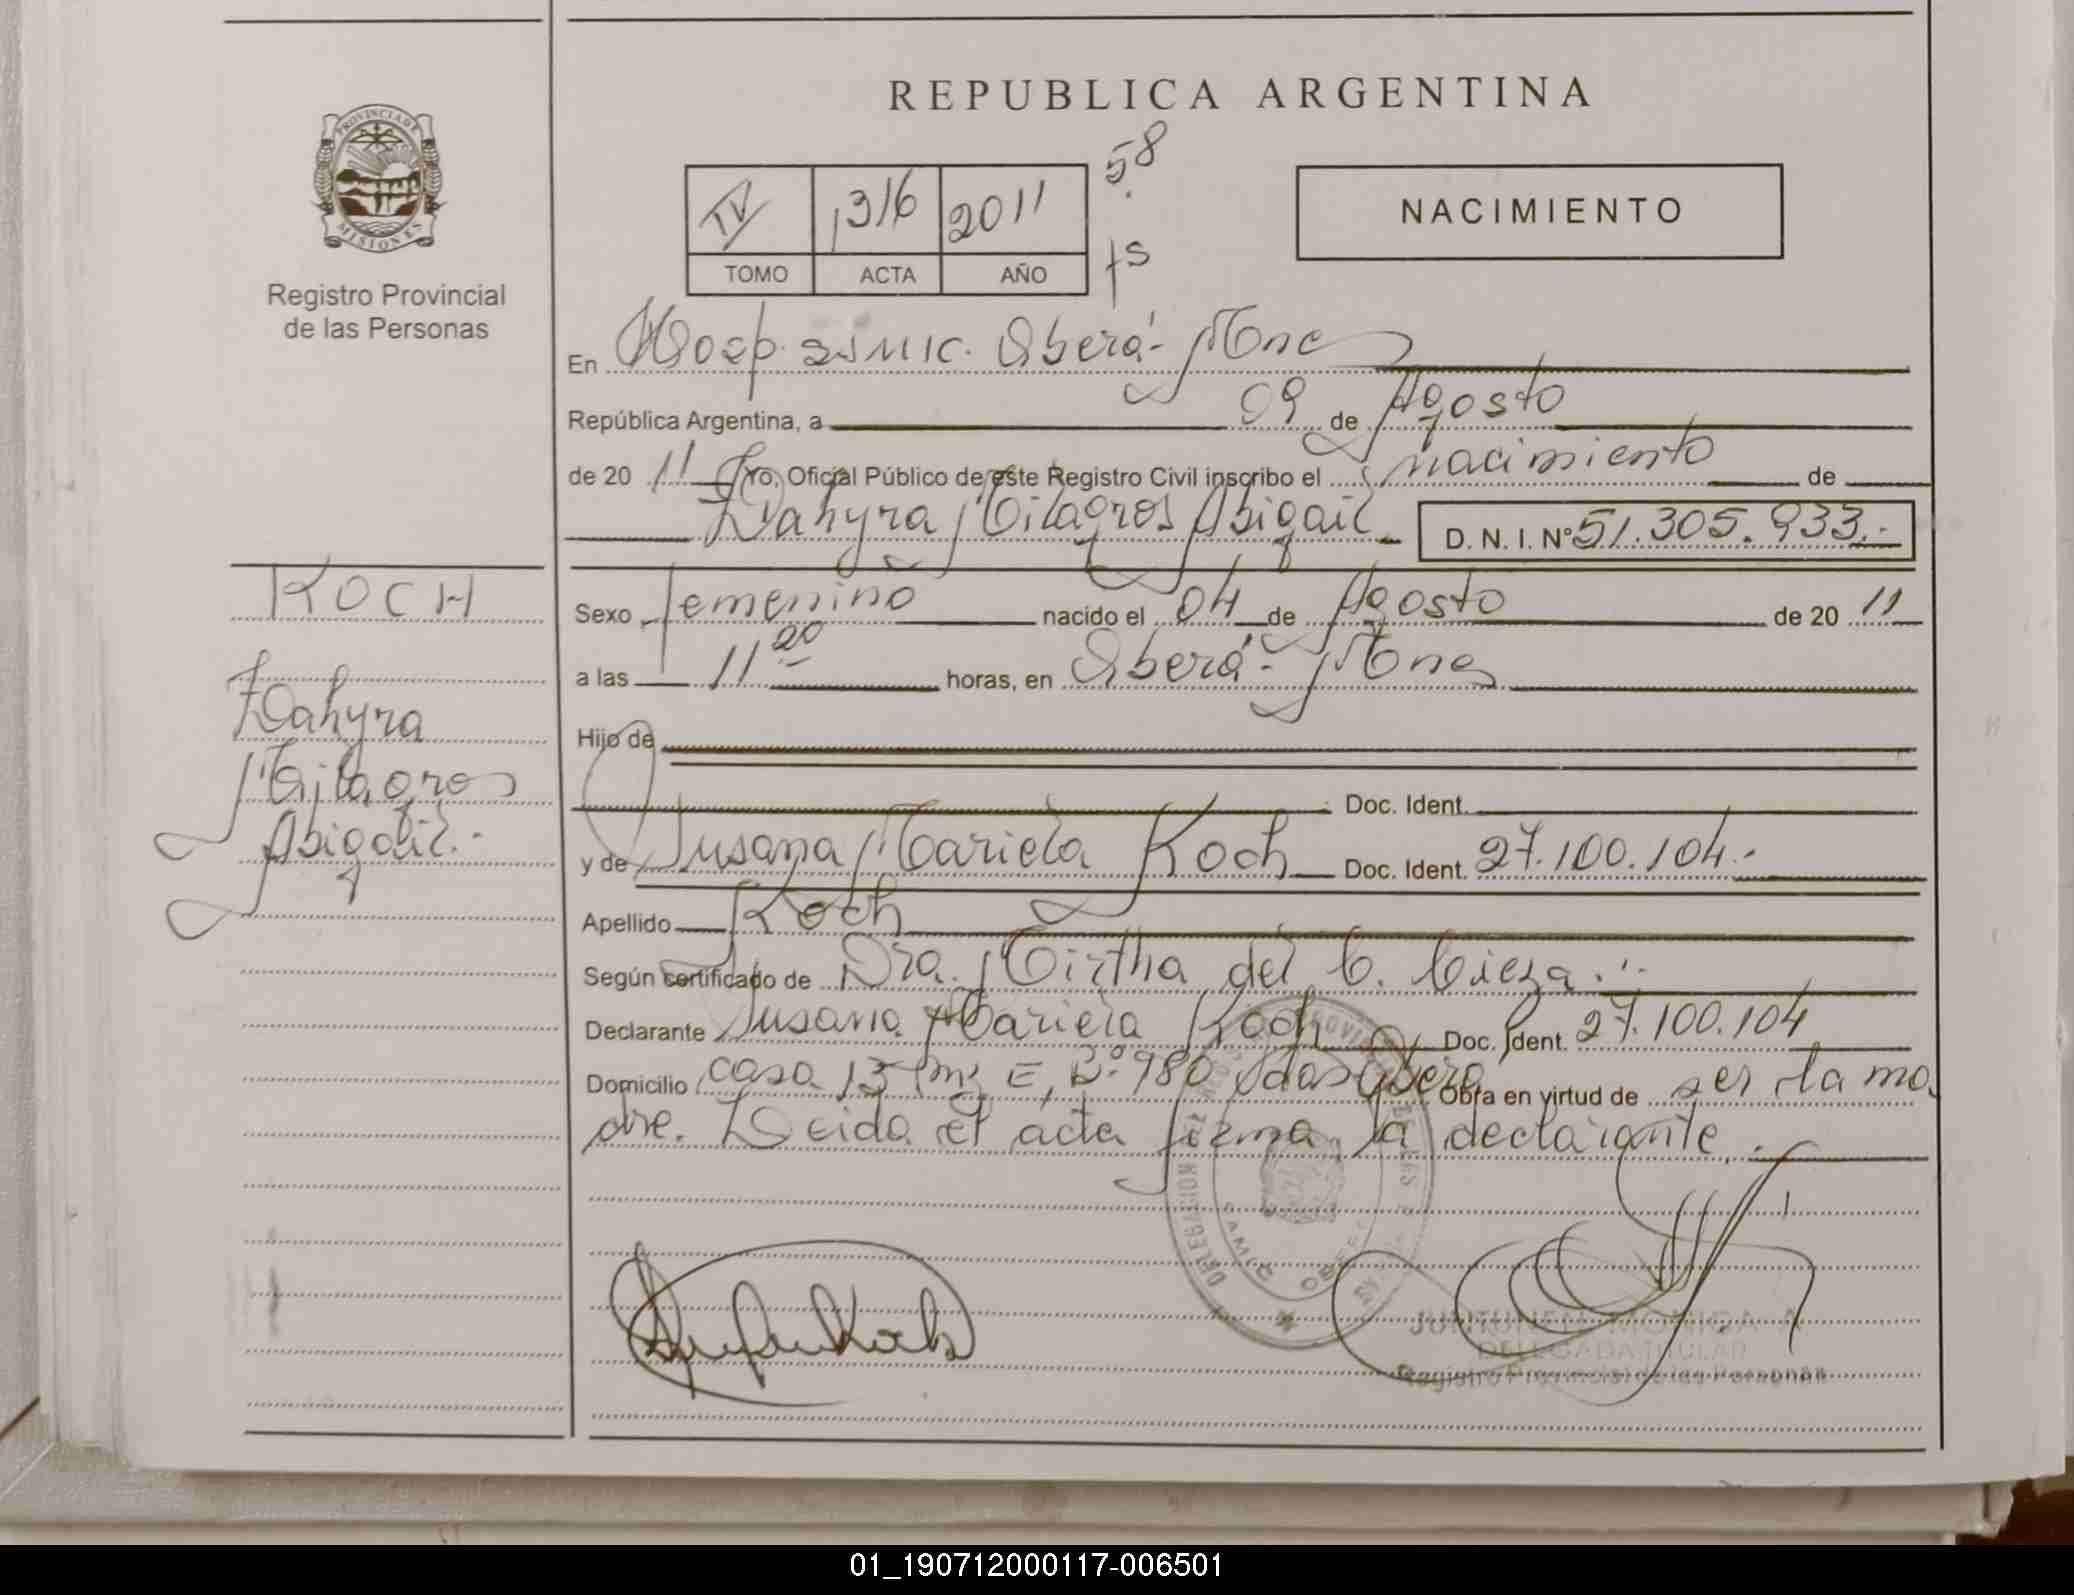 REPUBLICA ARGENTINA
PROVINCIA DE
MISIONES
Registro Provincial
de las Personas
58
fs
IV 1316 2011
TOMO ACTA AÑO
NACIMIENTO
En Hosp. Oberá - Mnes
República Argentina, a 09 de Agosto
de 2011 Yo, Oficial Público de este Registro Civil inscribo el nacimiento de
Dahyra Milagros Abigail D. N. I. Nº 51.305.933.-
KOCH
Sexo femenino nacido el 04 de Agosto de 2011
a las 11 20 horas, en Oberá - Mnes
Dahyra
Milagros
Abigail.-
Hijo de
Doc. Ident.
y de Susana Mariela Koch Doc. Ident. 27.100.104.-
Apellido Koch
Según certificado de Dra. Mirtha del C. Cieza.-
Declarante Susana Mariela Koch Doc. Ident. 27.100.104
Domicilio casa 13 mz E, Bº 980 Vdas Oberá Obra en virtud de ser la ma
dre. Leida el acta firma la declarante.
JUNTUNEN MONICA A
DELEGADA TITULAR
Registro Provincial de las Personas
01_190712000117-006501